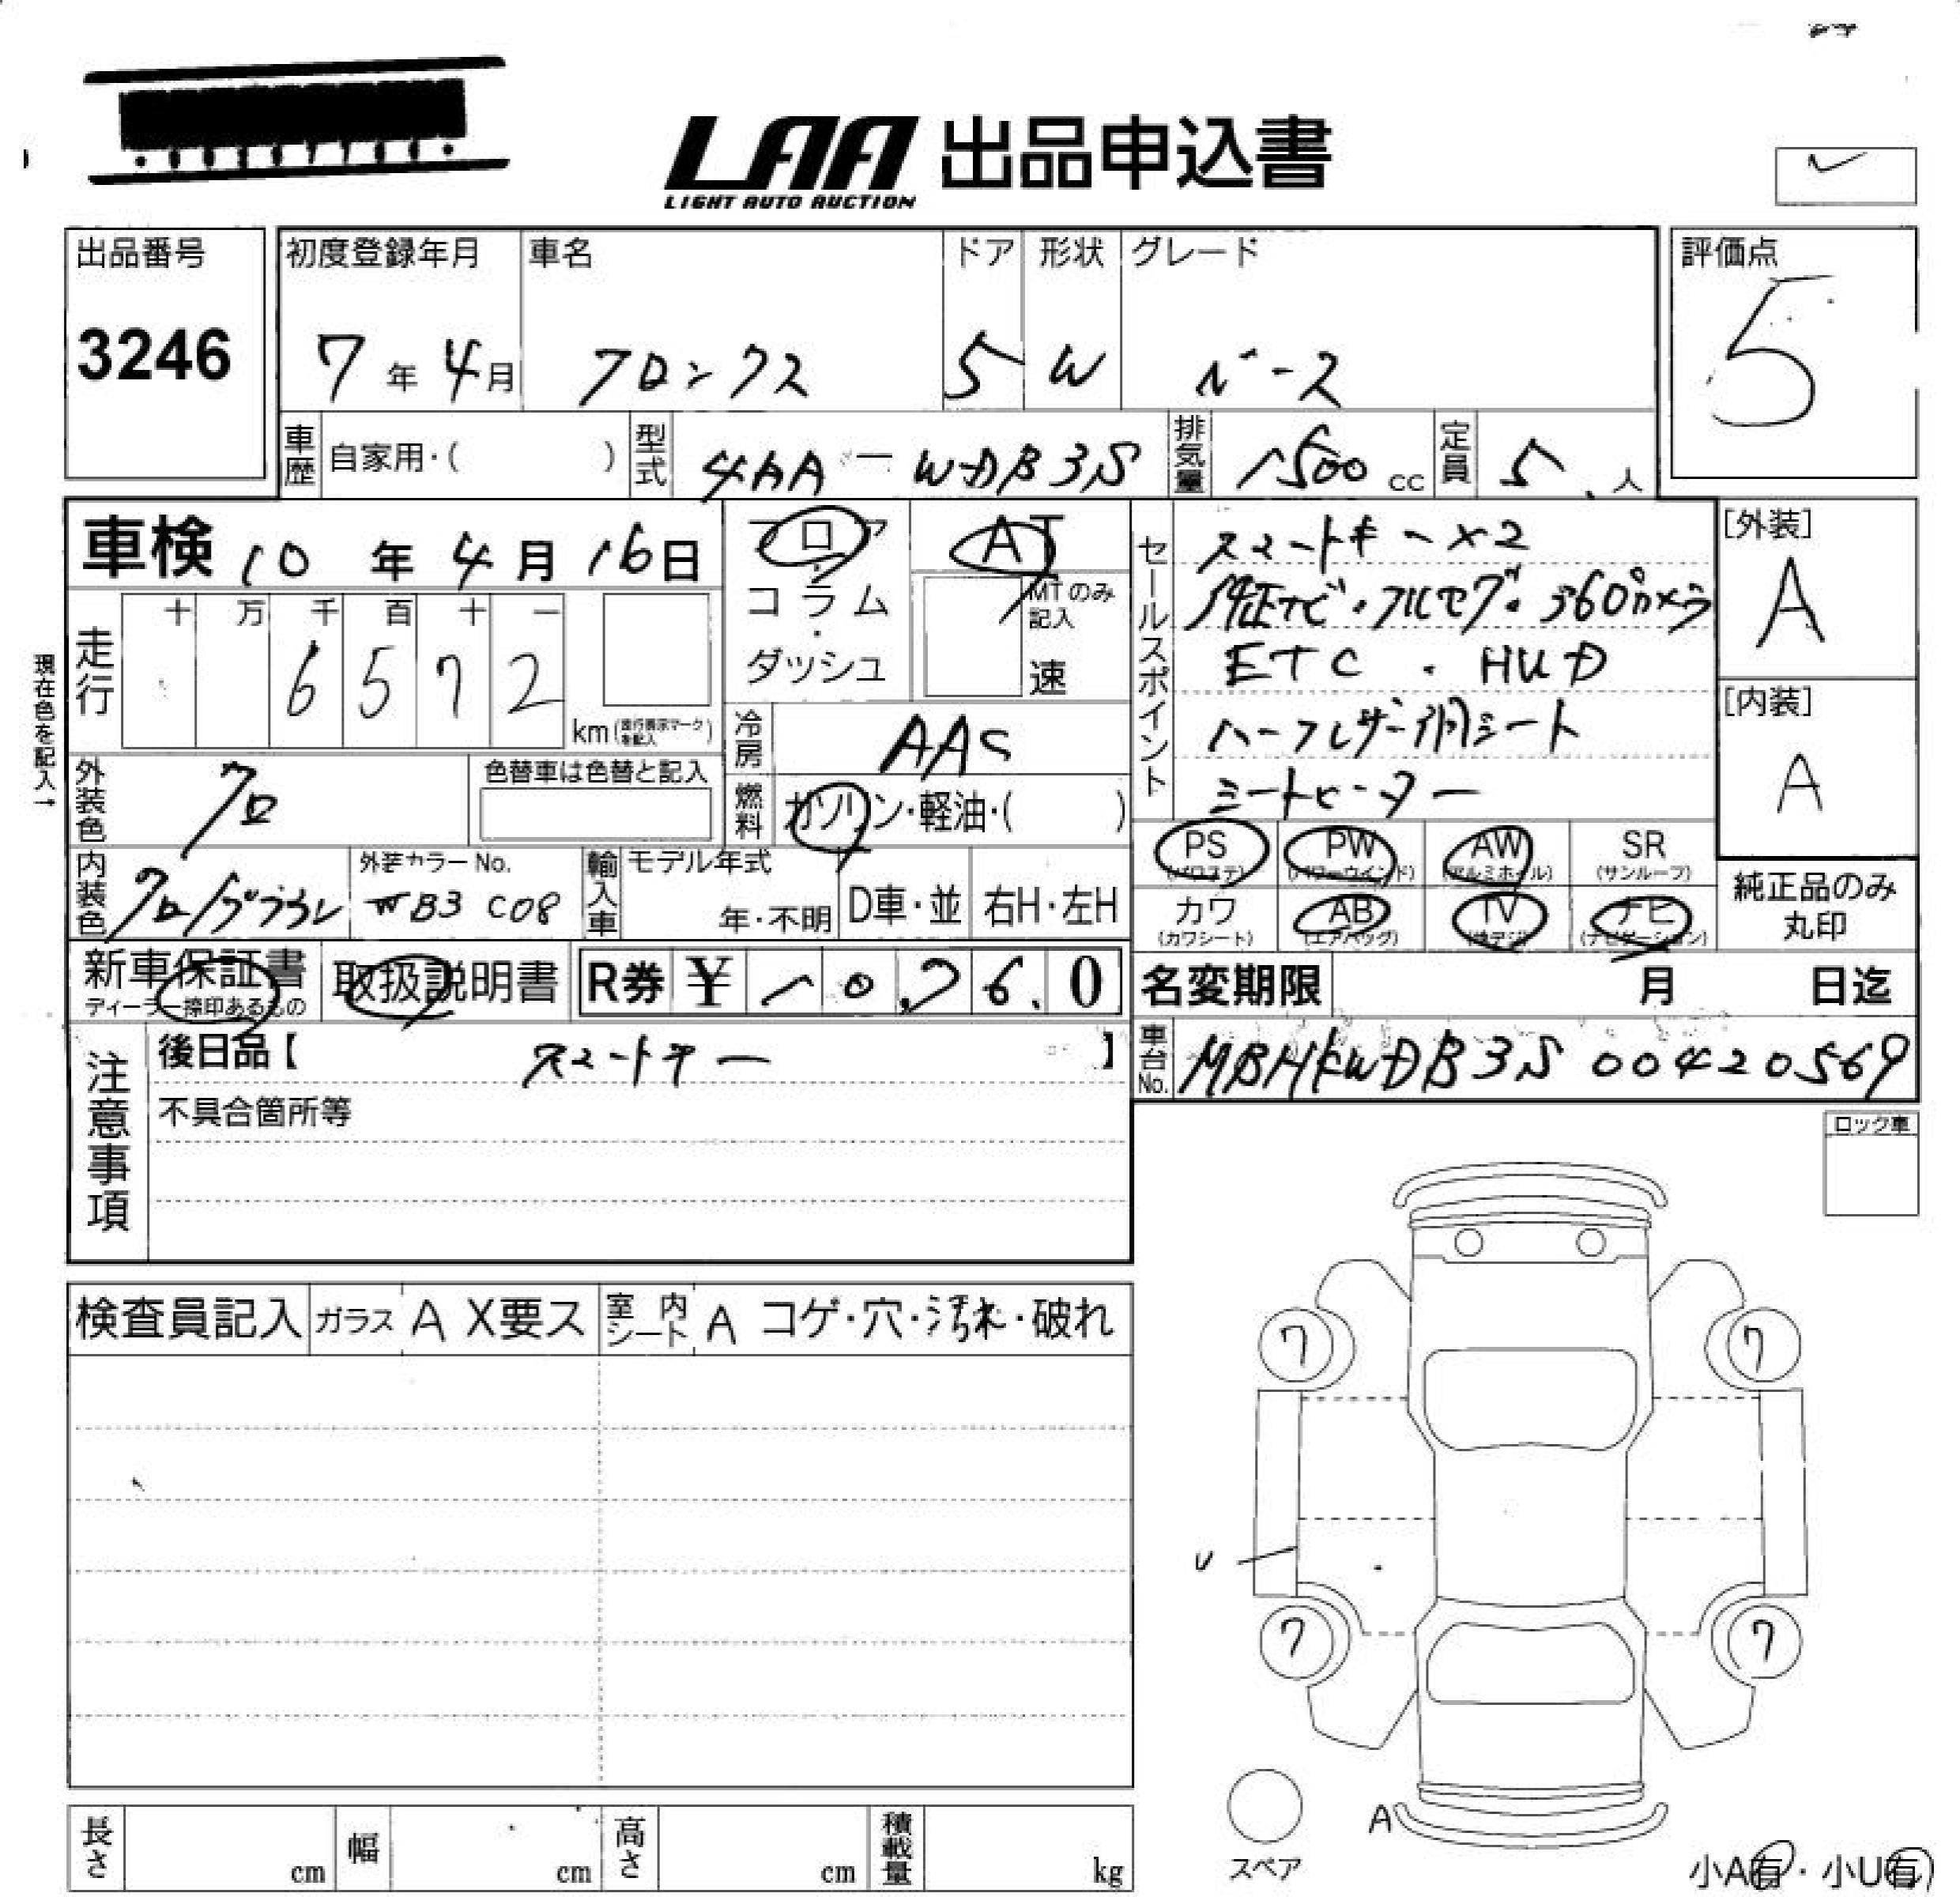 LAA 出品申込書
LIGHT AUTO AUCTION
出品番号
3246
初度登録年月
7年 4月
車名
フロンクス
ドア
5
形状
W
グレード
ベース
評価点
5
車歴
自家用・( )
型式
4AA-WDB3S
排気量
1500 cc
定員
5 人
車検 10年 4月 16日
フロア
コラム
・
ダッシュ
AT
MTのみ
記入
速
走行
十 万 千 百 十 一
6 5 7 2
km(走行表示マークを記入)
現在色を記入→
冷房
AAC
燃料
ガソリン・軽油・( )
外装色
クロ
色替車は色替と記入
内装色
クロ/ブラウン
外装カラーNo.
WB3 C08
輸入車
モデル年式
年・不明
D車・並
右H・左H
セールスポイント
スマートキー×2
純正ナビ・フルセグ・360°カメラ
ETC ・ HUD
ハーフレザー調シート
シートヒーター
[外装]
A
[内装]
A
PS
(パワステ)
PW
(パワーウインド)
AW
(アルミホイル)
SR
(サンルーフ)
カワ
(カワシート)
AB
(エアバッグ)
TV
(地デジ)
ナビ
(ナビゲーション)
純正品のみ
丸印
新車保証書
ディーラー捺印あるもの
取扱説明書
R券 ¥ 10,760
名変期限 月 日迄
車台No.
MBHKWDB3S00420569
注意事項
後日品【 スマートキー 】
不具合箇所等
ロック車
検査員記入
ガラス A X要ス
室内シート A コゲ・穴・汚れ・破れ
7
7
U
7
7
A
スペア
長さ cm
幅 cm
高さ cm
積載量 kg
小A有・小U有